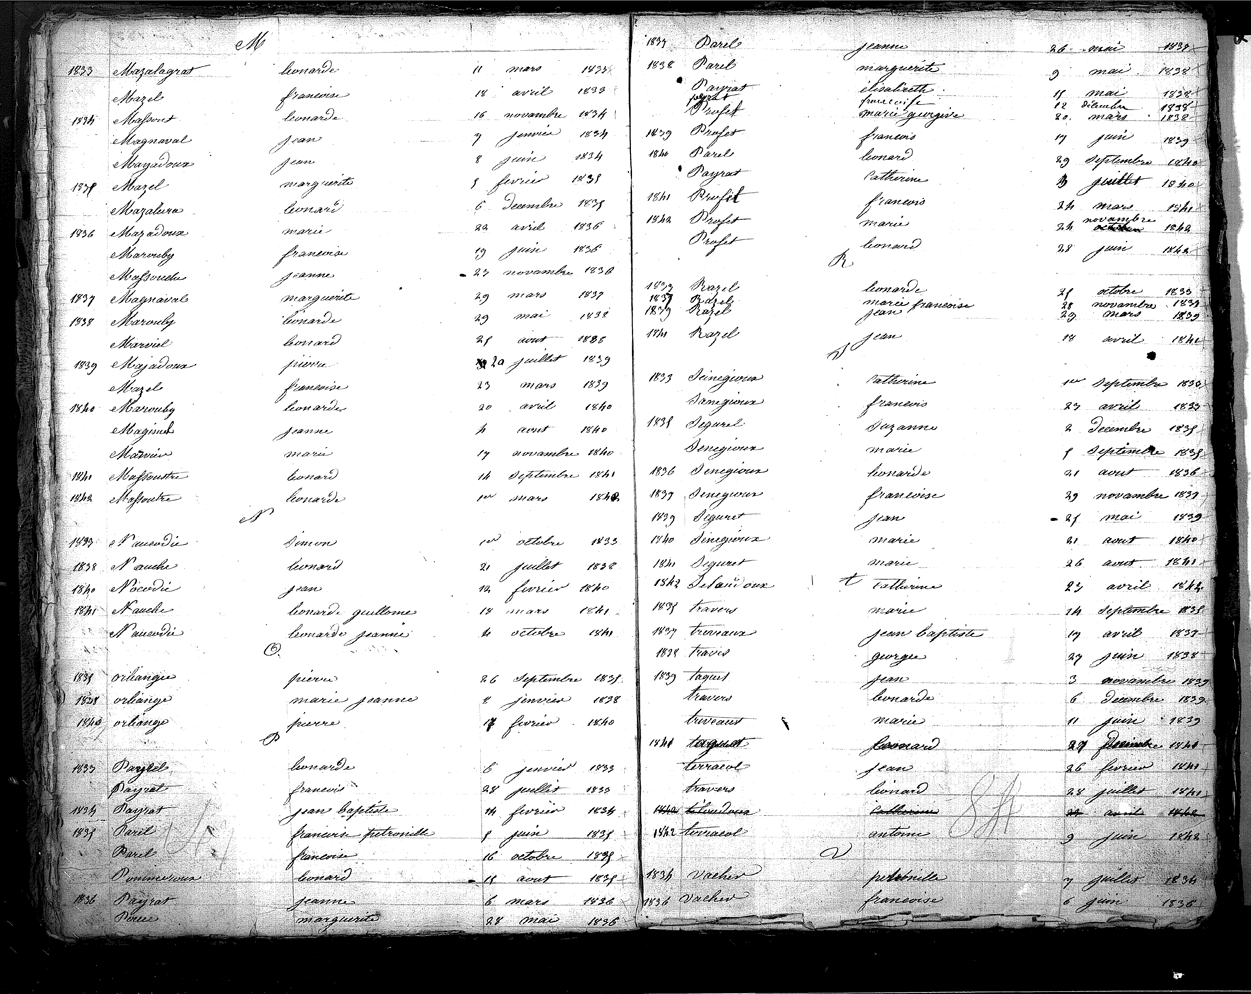 M
1833 Mazalagrat leonarde 11 mars 1833
Mazel francoise 18 avril 1833
1834 Massout leonarde 16 novembre 1834
Magnaval jean 7 janvier 1834
Mazadoux jean 8 juin 1834
1835 Mazel marguerite 5 fevrier 1835
Mazalura leonard 6 decembre 1835
1836 Mazadoux marie 22 avril 1836
Marouby francoise 19 juin 1836
Massouche jeanne 23 novembre 1836
1837 Magnaval marguerite 29 mars 1837
1838 Marouby léonarde 29 mai 1838
Marviel leonard 25 aout 1838
1839 Majadoux pierre 20 juillet 1839
Mazel francoise 23 mars 1839
1840 Marouby leonarde 20 avril 1840
jeanne 4 aout 1840
marie 17 novembre 1840
1841 Massoustre leonard 14 septembre 1841
1842 Massoutre leonarde 1er mars 1842
N
1833 Naucodie Simon 1er octobre 1833
1838 Nauche leonard 21 juillet 1838
1840 Nocodie jean 12 fevrier 1840
1841 Nauche leonarde guillome 18 mars 1841
Naucodie leonarde jeanne 4 octobre 1841
O
1835 orliangie pierre 26 septembre 1835
1838 orliange marie jeanne 8 janvier 1838
1840 orliange pierre 7 fevrier 1840
P
1833 leonarde 6 janvier 1833
Payrat francois 28 juillet 1833
1834 Payrat jean baptiste 14 fevrier 1834
1835 Parel francoise petronille 5 juin 1835
Parel francoise 16 octobre 1835
Pommeroux leonard 15 aout 1835
1836 Payrat jeanne 6 mars 1836
marguerite 28 mai 1836
1837 Parel jeanne 26 mai 1837
1838 Parel marguerite 9 mai 1838
Payrat élisabeth 15 mai 1838
peyrat francoise 12 décembre 1838
Profet marie georgive 20 mars 1838
1839 Profet francois 17 juin 1839
1840 Parel leonard 29 septembre 1840
Payrat Catherine juillet 1840
1841 Profit francois 24 mars 1841
1842 Profet marie 24 novembre 1842
Profet leonard 28 juin 1842
R
Razel leonarde 25 octobre 1833
Razel marie francoise 28 novembre
1839 Razel jean 29 mars 1839
1841 Razel jean 18 avril 1841
S
1833 Seinegioux Catherine 1er septembre 1833
Sanegioux francois 23 avril 1833
1835 Segurel Suzanne 2 decembre 1835
Senegioux marie 5 septembre 1835
1836 Senegioux leonarde 21 aout 1836
1837 Senegioux francoise 29 novembre 1837
1839 Seguret jean 25 mai 1839
1840 Sinegioux marie 21 aout 1840
1841 Seguret marie 26 aout 1841
1842 t Catherine 23 avril 1842
1835 travers marie 14 septembre 1835
1837 triveaux jean baptiste 17 avril 1837
1838 travers georges 27 juin 1838
1839 taguet jean 3 novembre 1839
travers leonarde 6 decembre 1839
triveaux marie 11 juin 1839
1841 taguet leonard 27 decembre 1841
terracol jean 26 fevrier 1841
travers léonard 28 juillet 1841
1842 Catherine avril 1842
1842 terracol antoine 9 juin 1842
V
1834 Vacher petronille 7 juillet 1834
1836 Vacher francoise 6 juin 1836
84